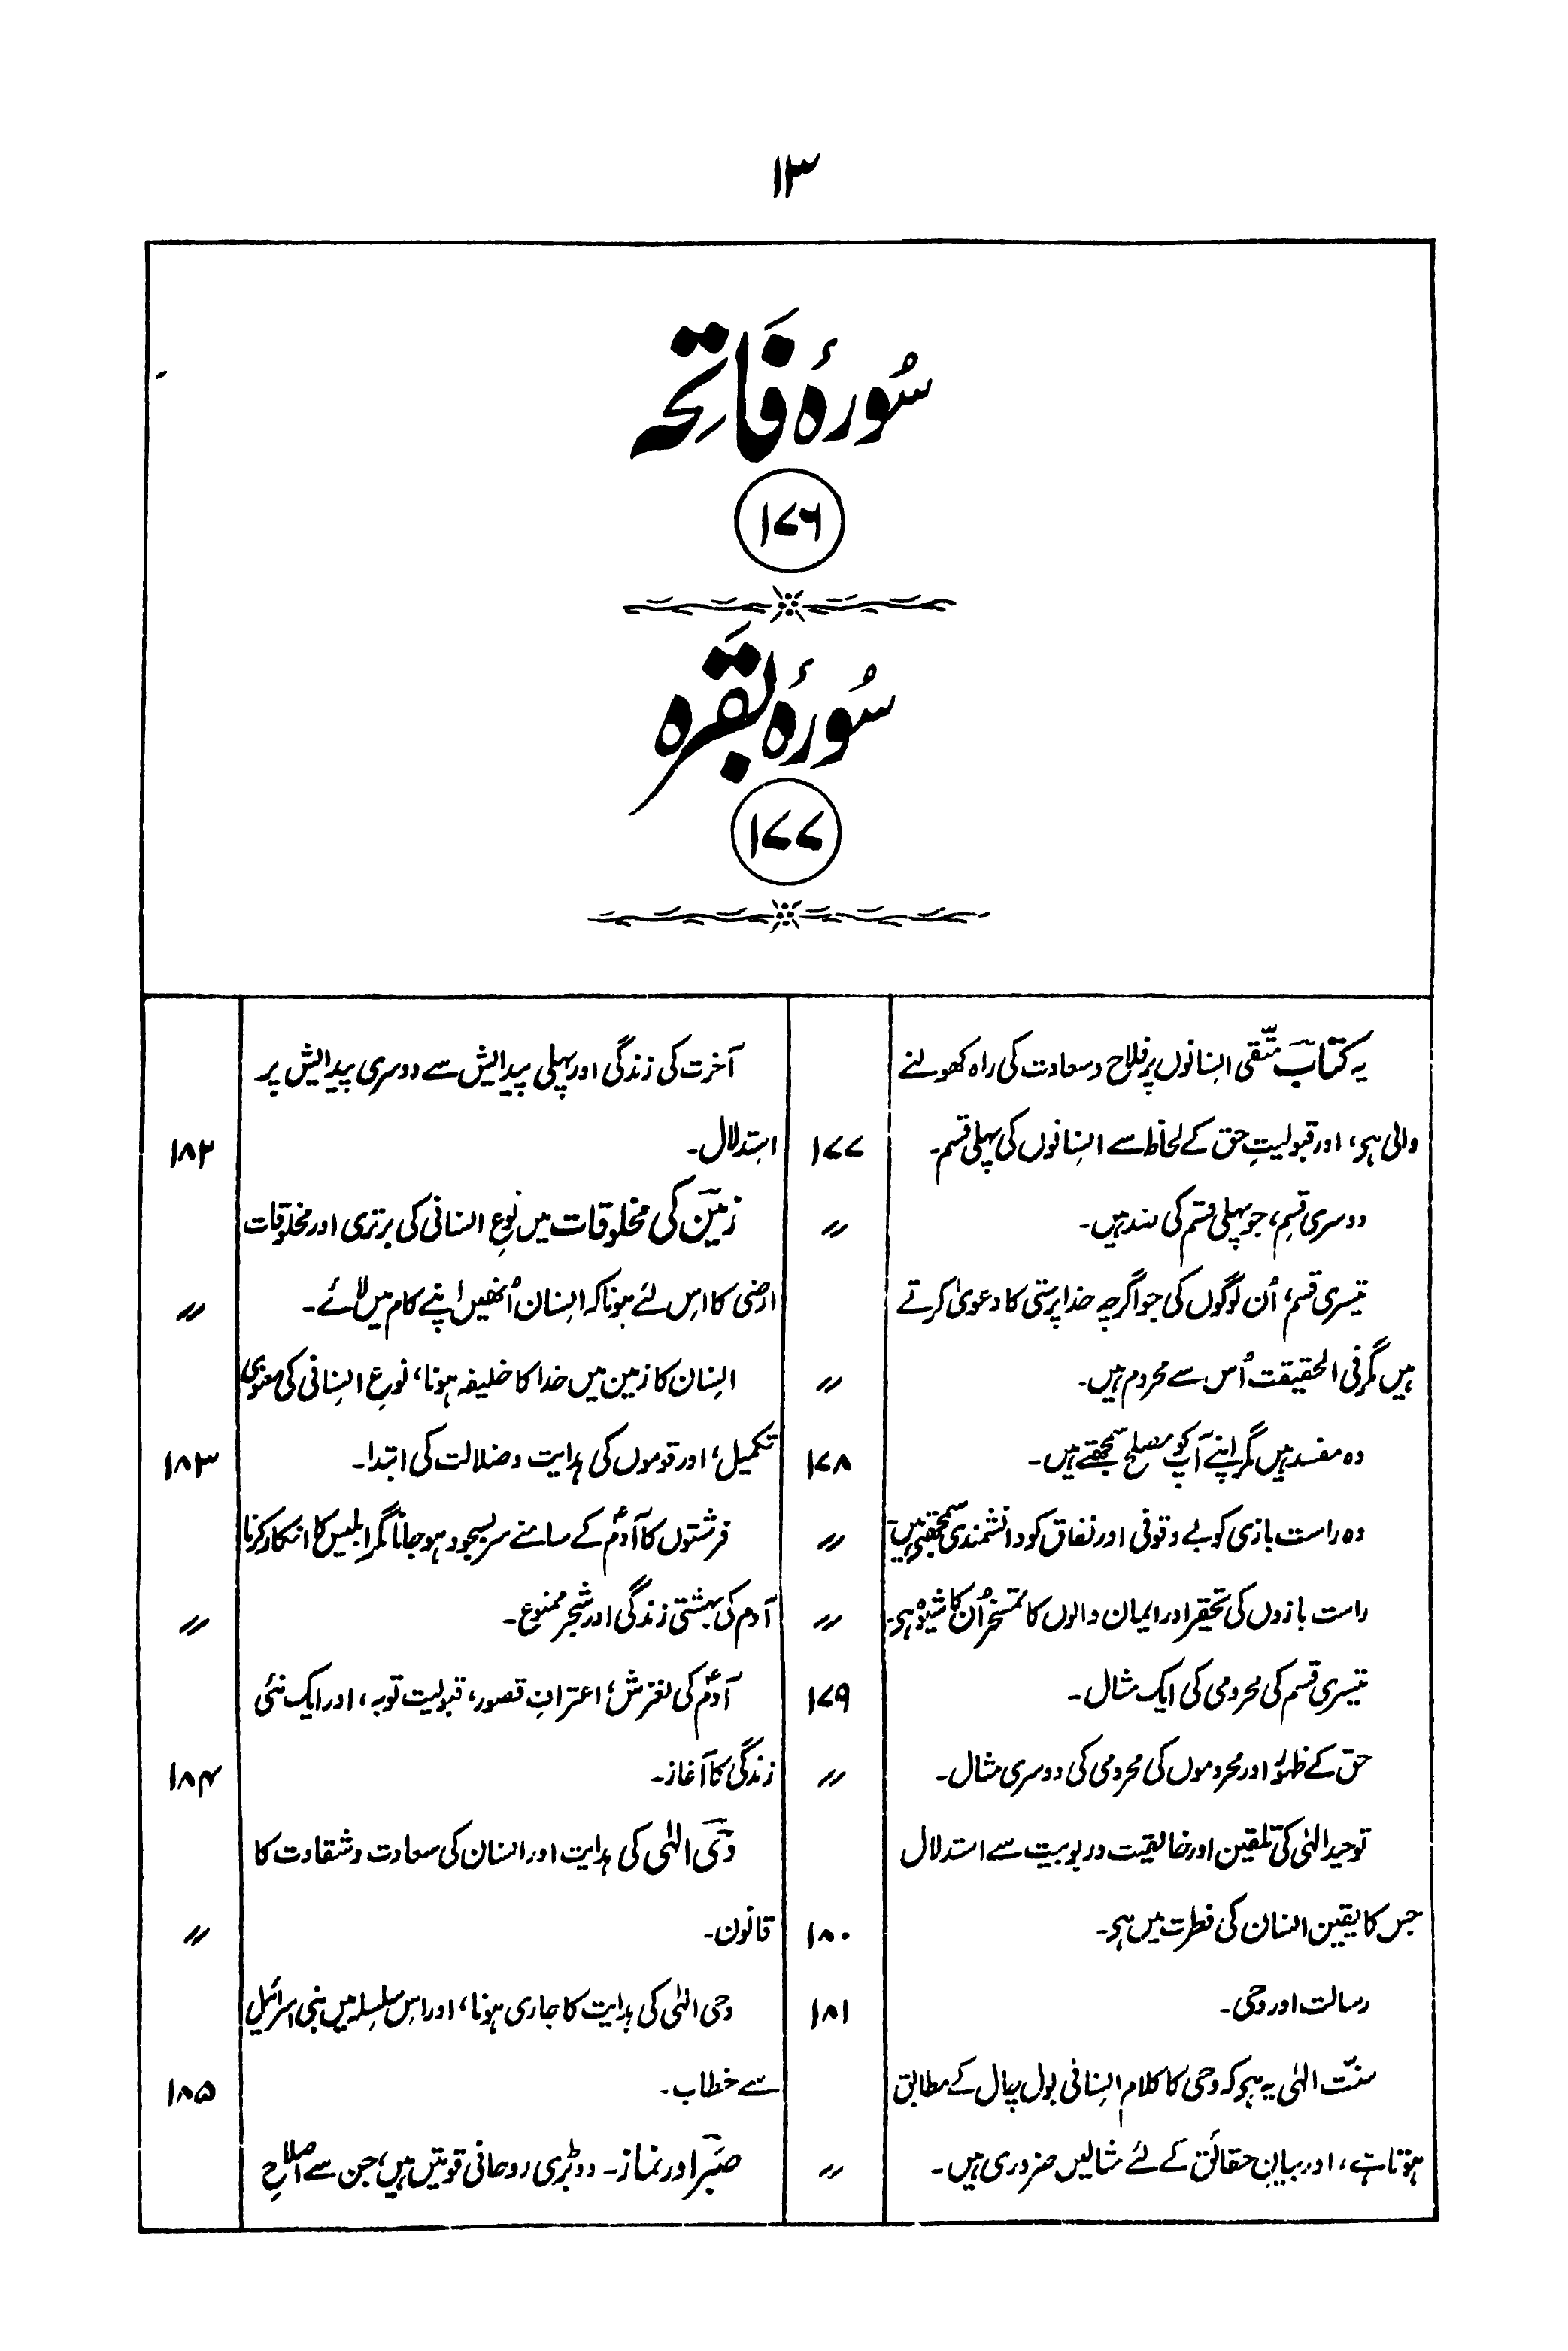 ۱۳
سُورۂ فَاتِحَہ
۱۷۶
سُورۂ بَقَرہ
۱۷۷
یہ کتابؔ متّقی انسانوں پر فلاح و سعادت کی راہ کھولنے
والی ہو، اور قبولیتِ حق کے لحاظ سے انسانوں کی پہلی قسم۔ ۱۷۷
دوسری قسم، جو پہلی قسم کی ضد ہیں۔ 〃
تیسری قسم، اُن لوگوں کی جو اگرچہ خدا پرستی کا دعویٰ کرتے
ہیں مگر فی الحقیقت اُس سے محروم ہیں۔ 〃
وہ مفسد ہیں مگر اپنے آپ کو مصلح سمجھتے ہیں۔ ۱۷۸
وہ راست بازی کو بے وقوفی اور نفاق کو دانشمندی سمجھتے ہیں۔ 〃
راست بازوں کی تحقیر اور ایمان والوں کا تمسخر اُن کا شیوہ ہو۔ 〃
تیسری قسم کی محرومی کی ایک مثال۔ ۱۷۹
حق کے ظہور اور محروموں کی محرومی کی دوسری مثال۔ 〃
توحید الٰہی کی تلقین اور خالقیت و ربوبیت سے استدلال
جس کا یقین انسان کی فطرت میں ہو۔ ۱۸۰
رسالت اور وحی۔ ۱۸۱
سنّت الٰہی یہ ہو کہ وحی کا کلام انسانی بول چال کے مطابق
ہوتا ہے، اور بیانِ حقائق کے لئے مثالیں ضروری ہیں۔ 〃
آخرت کی زندگی اور پہلی پیدائش سے دوسری پیدائش پر
استدلال۔ ۱۸۲
زمینؔ کی مخلوقات میں نوعِ انسانی کی برتری اور مخلوقات
ارضی کا اس لئے ہونا کہ انسان اُنھیں اپنے کام میں لائے۔ 〃
انسان کا زمین میں خدا کا خلیفہ ہونا، نوعِ انسانی کی معنوی
تکمیل، اور قوموں کی ہدایت و ضلالت کی ابتدا۔ ۱۸۳
فرشتوں کا آدمؑ کے سامنے سر بسجود ہو جانا مگر ابلیس کا انکار کرنا
آدم کی بہشتی زندگی اور شجرِ ممنوع۔ 〃
آدمؑ کی لغزش، اعترافِ قصور، قبولیت توبہ، اور ایک نئی
زندگی کا آغاز۔ ۱۸۴
وحیؔ الٰہی کی ہدایت اور انسان کی سعادت و شقاوت کا
قانون۔ 〃
وحی الٰہی کی ہدایت کا جاری ہونا، اور اس سلسلہ میں بنی اسرائیل
سے خطاب۔ ۱۸۵
صبرؔ اور نماز۔ دو بڑی روحانی قوتیں ہیں، جن سے اصلاحِ